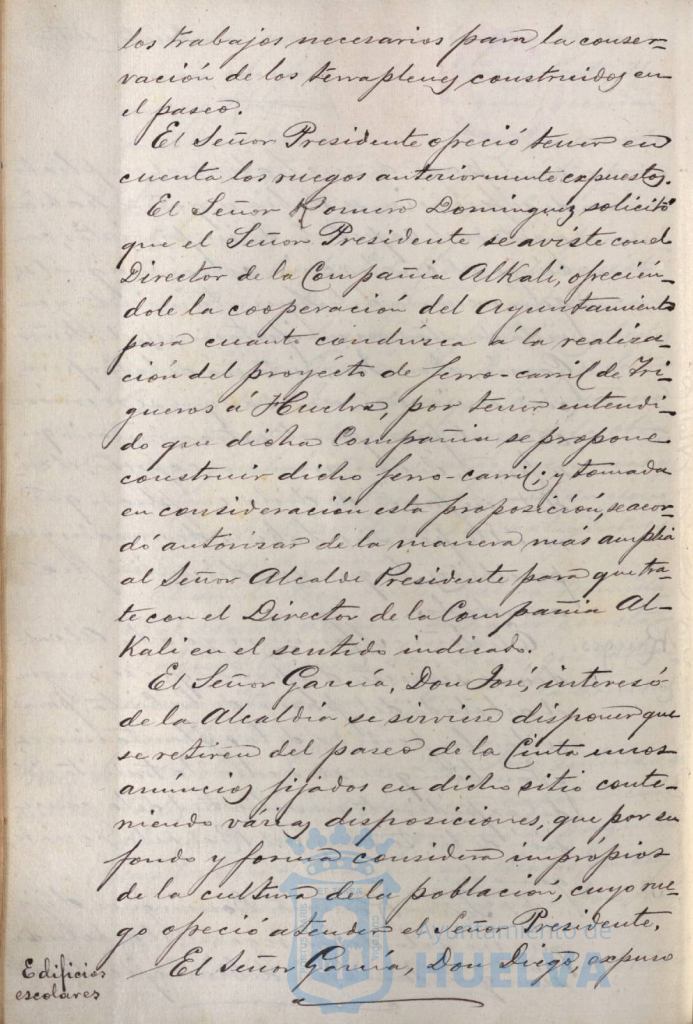 los trabajos necesarios para la conser-
vación de los terraplenes construidos en
el paseo.
El Señor Presidente ofreció tener en
cuenta los ruegos anteriormente expuestos.
El Señor Romero Dominguez solicitó
que el Señor Presidente se aviste con el
Director de la Compañia Alkali, ofrecién-
dole la cooperación del Ayuntamiento
para cuanto conduzca á la realiza-
ción del proyécto de ferro-carril de Tri-
gueros á Huelva, por tener entendi-
do que dicha Compañia se propone
construir dicho ferro-carril; y tomada
en consideración esta proposición, se acor-
dó autorizar de la manera más amplia
al Señor Alcalde Presidente para que tra-
te con el Director de la Compañia Al-
Kali en el sentido indicado.
El Señor García, Don José, interesó
de la Alcaldia se sirviese disponer que
se retiren del paseo de la Cinta unos
anúncios fijados en dicho sitio conte-
niendo várias disposiciones, que por su
fondo y forma considera imprópios
de la cultura de la población, cuyo rue-
go ofreció atender el Señor Presidente.
Edificios
escolares
El Señor García, Don Diego, expuso
Ayuntamiento de
HUELVA